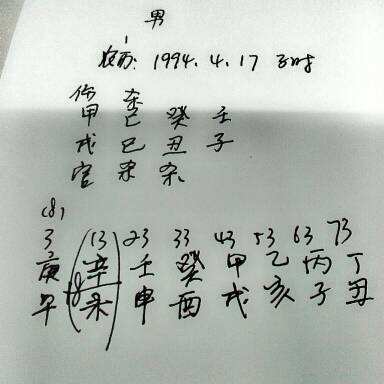 男
农历: 1994. 4. 17 子时
伤 杀
甲 己 癸 壬
戌 巳 丑 子
官 杂 杂
(8)
3 (13 23 33 43 53 63 73
庚 辛 壬 癸 甲 乙 丙 丁
午 未 申 酉 戌 亥 子 丑